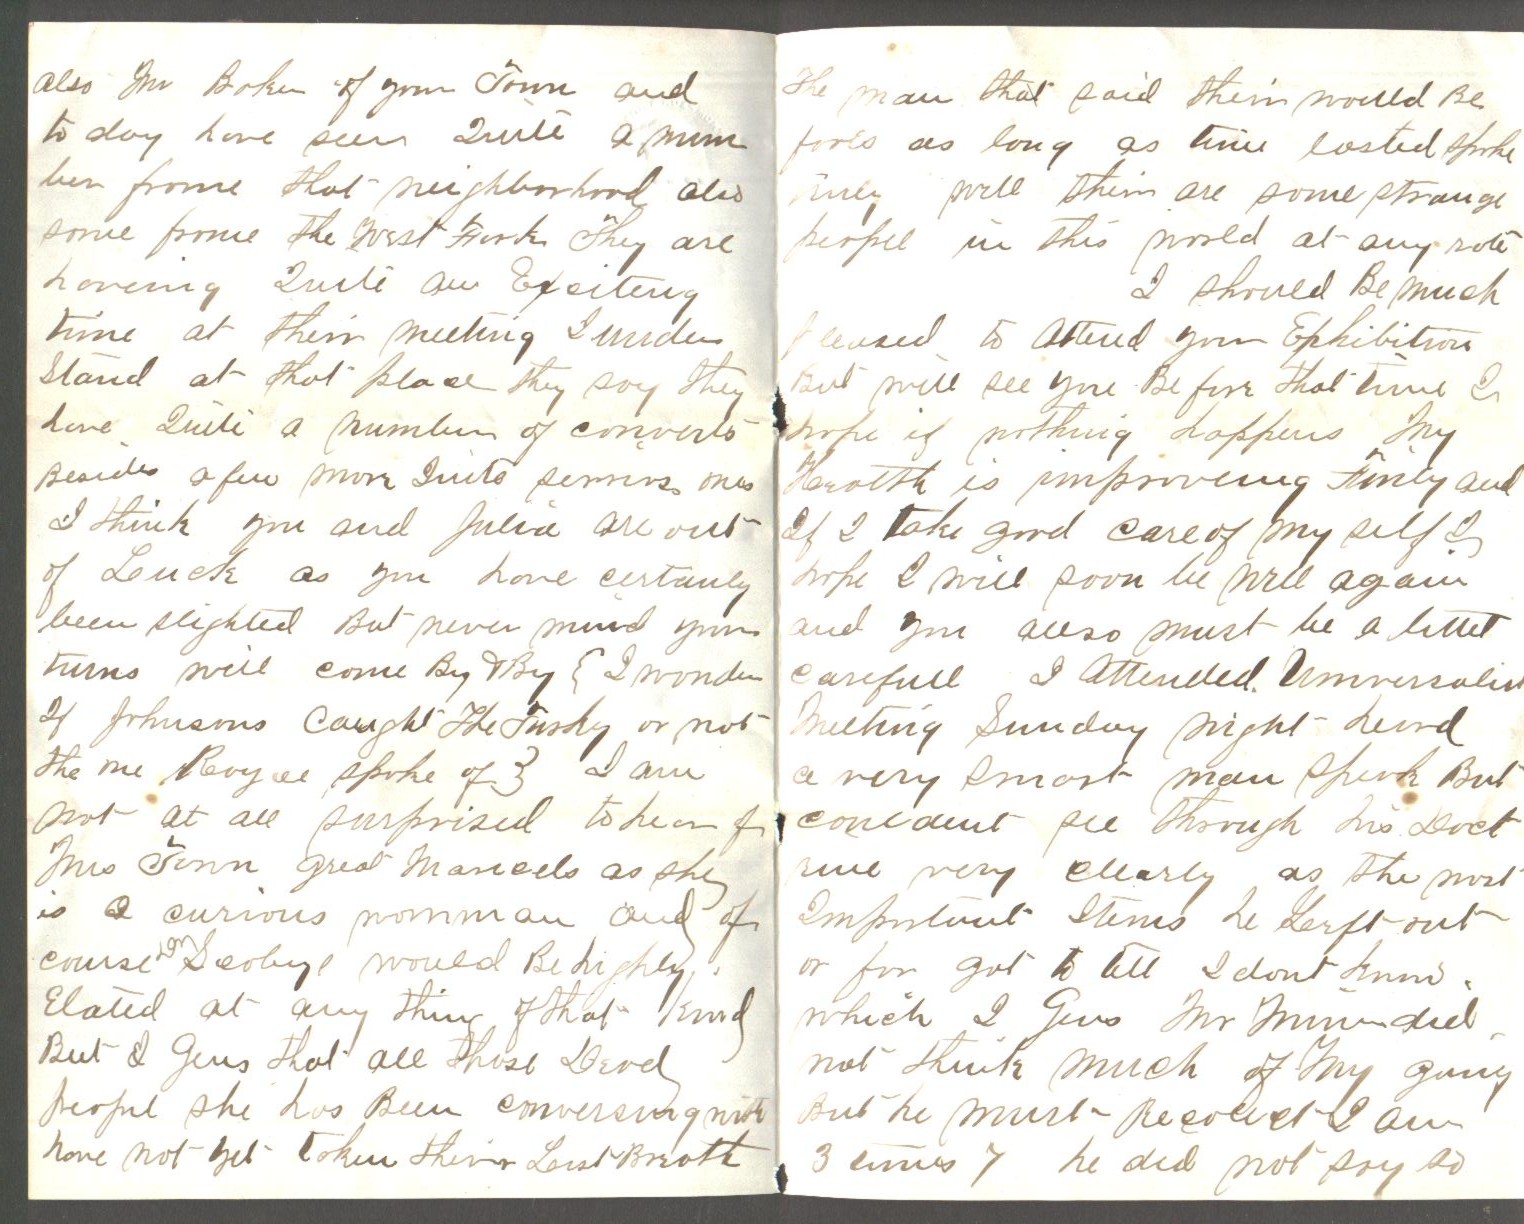 also Mr Baker of your Town and
to day have seen Quite a num
ber frome that neighborhood also
some frome the West Fork They are
haveing Quite an Exciteng
time at their meeting I under
stand at that place they say they
have Quite a number of converts
Besides a few more Quite serious ones
I think you and Julia are out
of Leuck as you have certanly
been slighted But never mind your
turns will come By & By { I wonder
If Johnsons caught The Turky or not
the one spoke of } I am
not at all surprised to hear of
Mrs Town great Marvels as she
is a curious womman and of
course would Be highly
Elated at any thing of that kind
But I Gess that all those Dead
peopel she has Been conversing with
have not yet taken their Last Breath
The man that said their would Be
fools as long as time lasted spoke
truly well their are some strange
peopel in this world at any rate
I should Be much
pleased to attend your Exhibition
But will see you Before that time I
hope if nothing happens My
Health is improveing Finely and
If I take good care of my self I
hope I will soon be well again
and you allso must be a littel
carefull I attended Universalist
Meeting Sunday night heard
a very smart man speak But
could ent see through his Doct
rine very clearly as the most
Important Items he left out
or for got to tell I dont know
which I Gess Mr did
not think much of My going
But he must Recolect I am
3 times 7 he did not say so